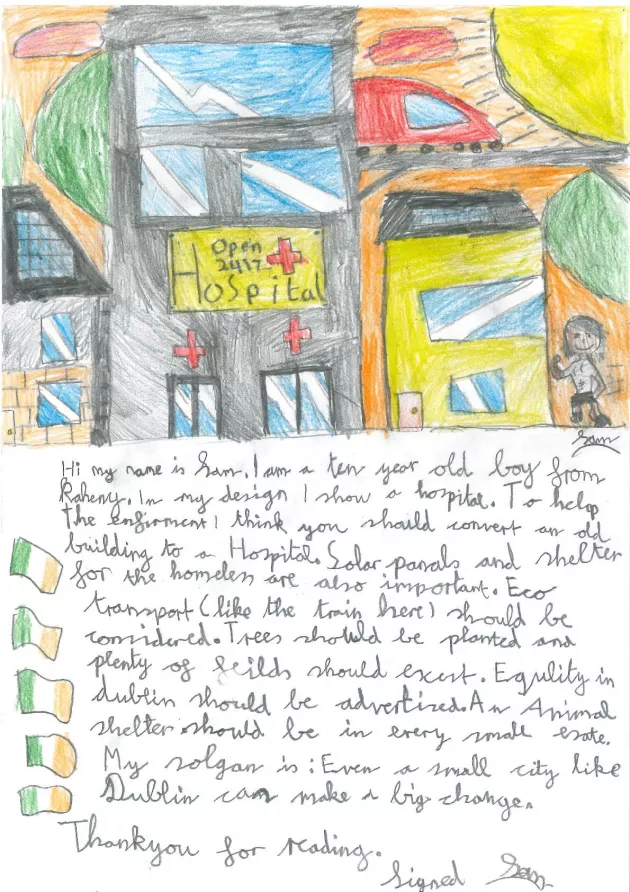 Open
24/7
Hospital
Sam
Hi my name is Sam. I am a ten year old boy from
Raheny. In my design I show a hospital. To help
the enfirment I think you should convert an old
building to a Hospital. Solar panals and shelter
for the homeless are also important. Eco
transport (like the train here) should be
considered. Trees should be planted and
plenty of feilds should exest. Equlity in
dublin should be advertized. An Animal
shelter should be in every small esate.
My solgan is: Even a small city like
Dublin can make a big change.
Thankyou for reading.
Signed Sam